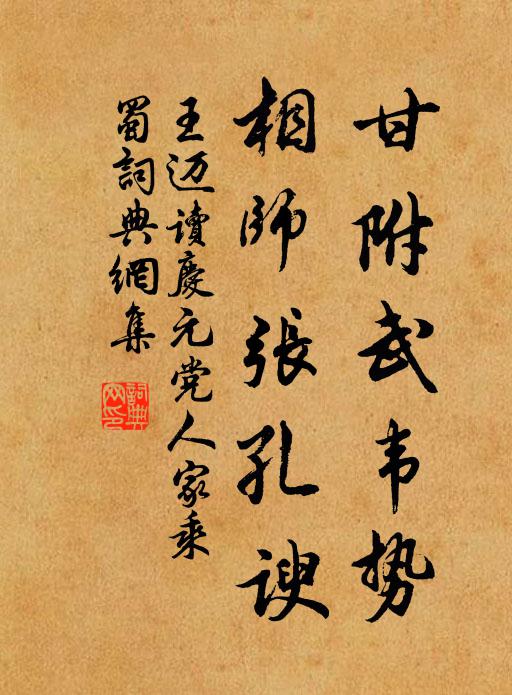 甘附武韦势
相师張孔諛
王迈讀慶元党人家乘
蜀詞典網集
詞典網印